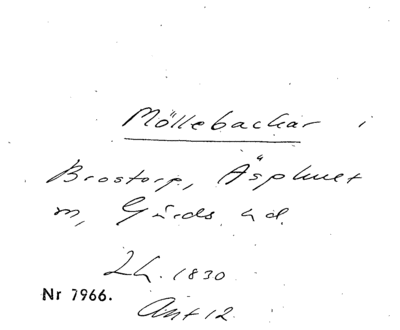 Möllebackar i
Brostorp, Äsphult
m, Gärds hd.
Lh. 1830
Nr 7966.
Ant 12